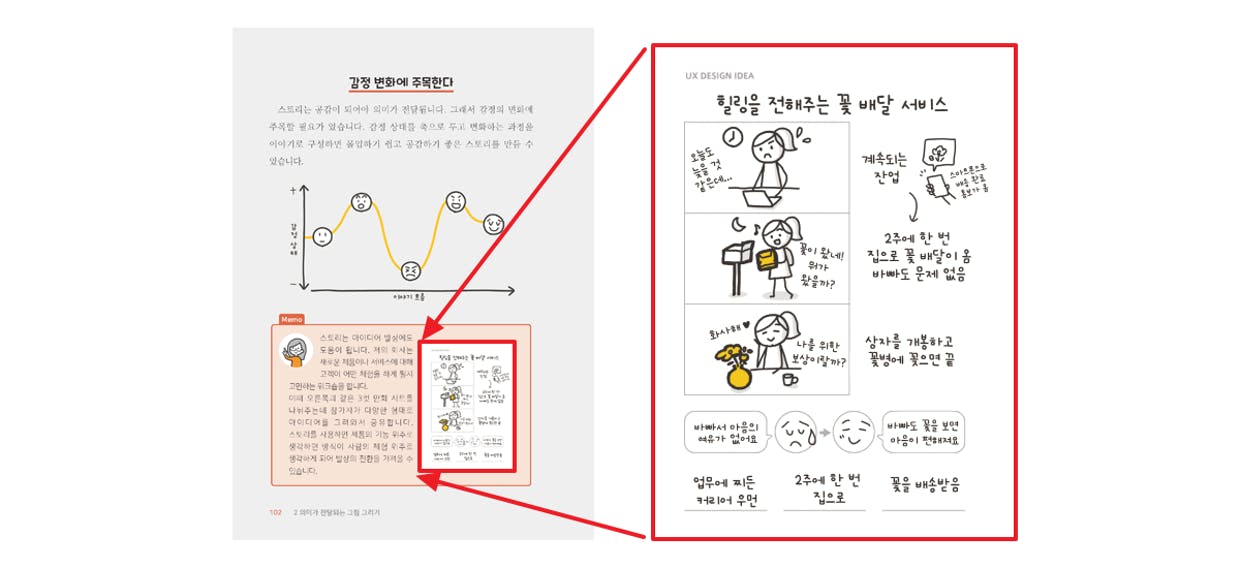 감정 변화에 주목한다
스토리는 공감이 되어야 의미가 전달됩니다. 그래서 감정의 변화에
주목할 필요가 있습니다. 감정 상태를 축으로 두고 변화하는 과정을
이야기로 구성하면 몰입하기 쉽고 공감하기 좋은 스토리를 만들 수
있습니다.
+
감정 상태
−
이야기 흐름
Memo
스토리는 아이디어 발상에도
도움이 됩니다. 저의 회사는
새로운 제품이나 서비스에 대해
고객이 어떤 체험을 하게 될지
고민하는 워크숍을 합니다.
이때 오른쪽과 같은 3컷 만화 시트를
나눠주는데 참가자가 다양한 형태로
아이디어를 그려와서 공유합니다.
스토리를 사용하면 제품의 기능 위주로
생각하던 방식이 사람의 체험 위주로
생각하게 되어 발상의 전환을 가져올 수
있습니다.
힐링을 전해주는 꽃 배달 서비스
102 2 의미가 전달되는 그림 그리기
UX DESIGN IDEA
힐링을 전해주는 꽃 배달 서비스
오늘도
늦을 것
같은데...
계속되는
잔업
스마트폰으로
배송 완료
통보가 옴
꽃이 왔네!
뭐가
왔을까?
2주에 한 번
집으로 꽃 배달이 옴
바빠도 문제 없음
화사해♥
나를 위한
보상이랄까?
상자를 개봉하고
꽃병에 꽂으면 끝
바빠서 마음의
여유가 없어요
바빠도 꽃을 보면
마음이 편해져요
업무에 찌든
커리어 우먼
2주에 한 번
집으로
꽃을 배송받음